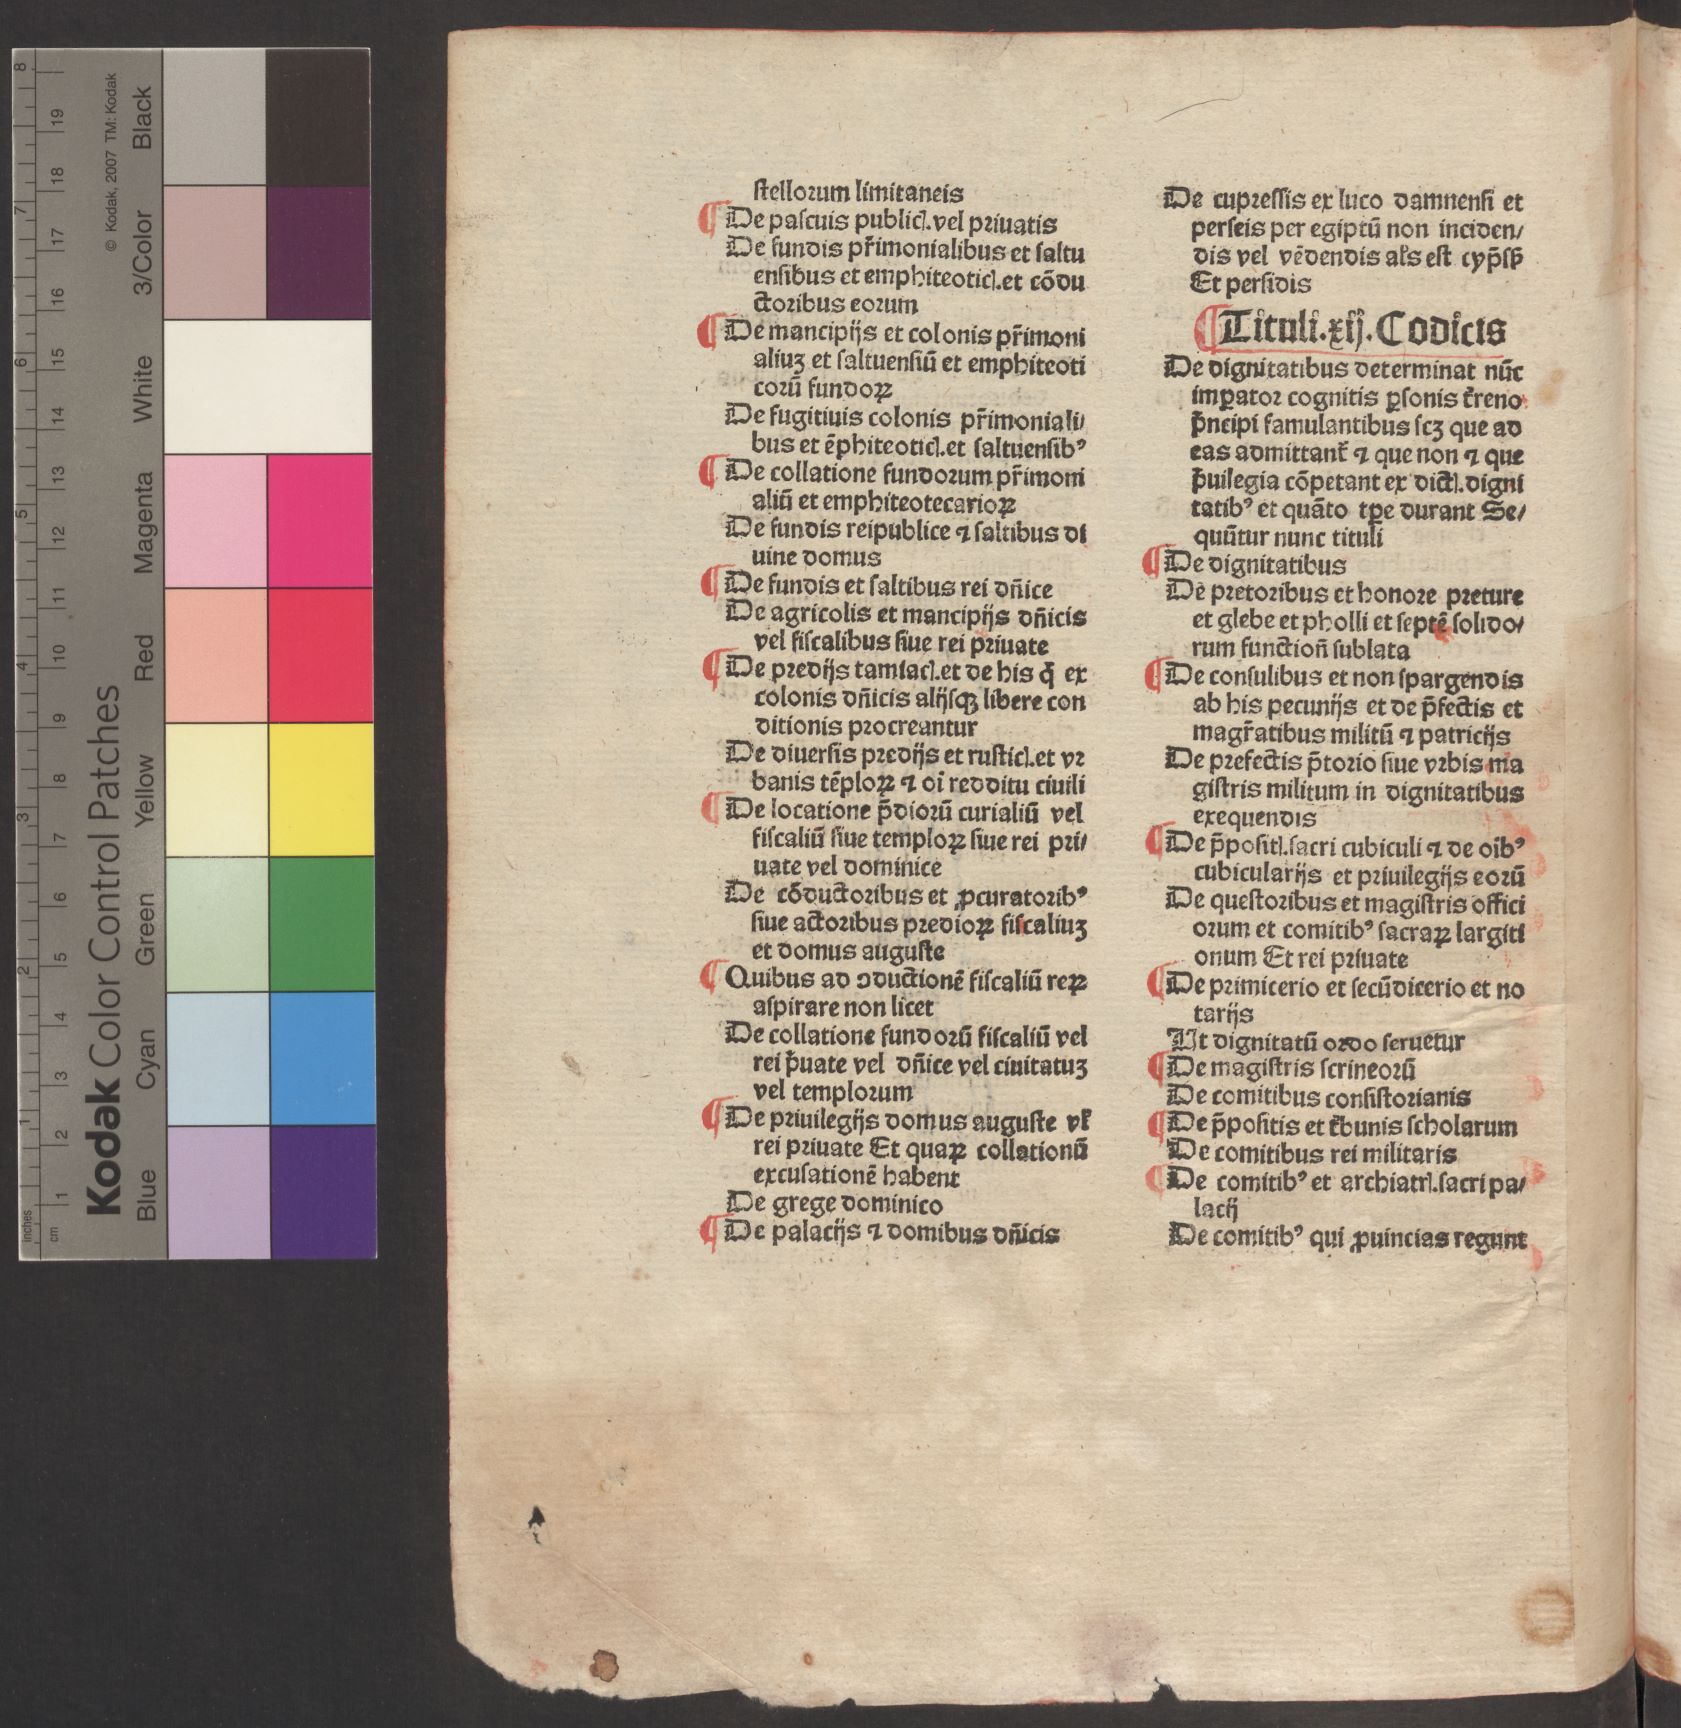 stellorum limitaneis
¶ De pascuis publicꝭ.vel priuatis
De fundis pr̃imonialibus et saltu
ensibus et emphiteoticꝭ.et cōdu
ctoribus eorum
¶ De mancipijs et colonis pr̃imoni
aliuꝫ et saltuensiū et emphiteoti
corū fundoꝝ
De fugitiuis colonis pr̃imoniali/
bus et ēphiteoticꝭ.et saltuensibꝰ
¶ De collatione fundorum pr̃imoni
aliū et emphiteotecarioꝝ
De fundis reipublice ⁊ saltibus di
uine domus
¶ De fundis et saltibus rei dn̄ice
De agricolis et mancipijs dn̄icis
vel fiscalibus siue rei priuate
¶ De predijs tamiacꝭ.et de his q̄ ex
colonis dn̄icis alijsqꝫ libere con
ditionis procreantur
De diuersis predijs et rusticꝭ.et vr
banis tēploꝝ ⁊ oī redditu ciuili
¶ De locatione p̄diorū curialiū vel
fiscaliū siue temploꝝ siue rei pri/
uate vel dominice
De cōductoribus et ꝓcuratoribꝰ
siue actoribus predioꝝ fiscaliuꝫ
et domus auguste
¶ Quibus ad ↄductionē fiscaliū reꝝ
aspirare non licet
De collatione fundorū fiscaliū vel
rei p̄uate vel dn̄ice vel ciuitatuꝫ
vel templorum
¶ De priuilegijs domus auguste vl̄
rei priuate Et quaꝝ collationū
excusationē habent
De grege dominico
¶ De palacijs ⁊ domibus dn̄icis
De cupressis ex luco damnensi et
perseis per egiptū non inciden/
dis vel vēdendis al̄s est cyp̄sꝭ
Et persidis
¶ Tituli.xij.Codicis
De dignitatibus determinat nūc
imꝑator cognitis ꝑsonis t̄reno
p̄ncipi famulantibus scꝫ que ad
eas admittant̄ ⁊ que non ⁊ que
p̄uilegia cōpetant ex dictꝭ.digni
tatibꝰ et quāto tꝑe durant Se/
quūtur nunc tituli
¶ De dignitatibus
De pretoribus et honore preture
et glebe et pholli et septē solido/
rum function̄ sublata
¶ De consulibus et non spargendis
ab his pecunijs et de p̄fectis et
magr̄atibus militū ⁊ patricijs
De prefectis p̄torio siue vrbis ma
gistris militum in dignitatibus
exequendis
¶ De p̄positꝭ.sacri cubiculi ⁊ de oībꝰ
cubicularijs et priuilegijs eorū
De questoribus et magistris offici
orum et comitibꝰ sacraꝝ largiti
onum Et rei priuate
¶ De primicerio et secūdicerio et no
tarijs
Ut dignitatū ordo seruetur
¶ De magistris scrineorū
De comitibus consistorianis
¶ De p̄positis et t̄bunis scholarum
De comitibus rei militaris
¶ De comitibꝰ et archiatrꝭ.sacri pa/
lacij
De comitibꝰ qui ꝓuincias regunt
Kodak Color Control Patches
© Kodak, 2007 TM: Kodak
Blue Cyan Green Yellow Red Magenta White 3/Color Black
inches 1 2 3 4 5 6 7 8
cm 1 2 3 4 5 6 7 8 9 10 11 12 13 14 15 16 17 18 19